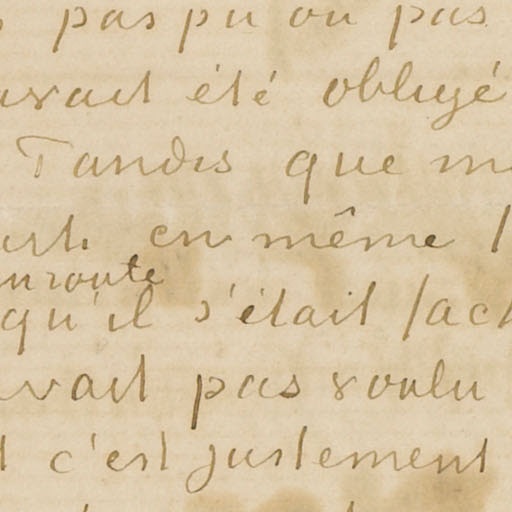 pas pu ou pas
avait été obligé
Tandis que
en même
en route
qu'il s'était fach
avait pas voulu
c'est justement